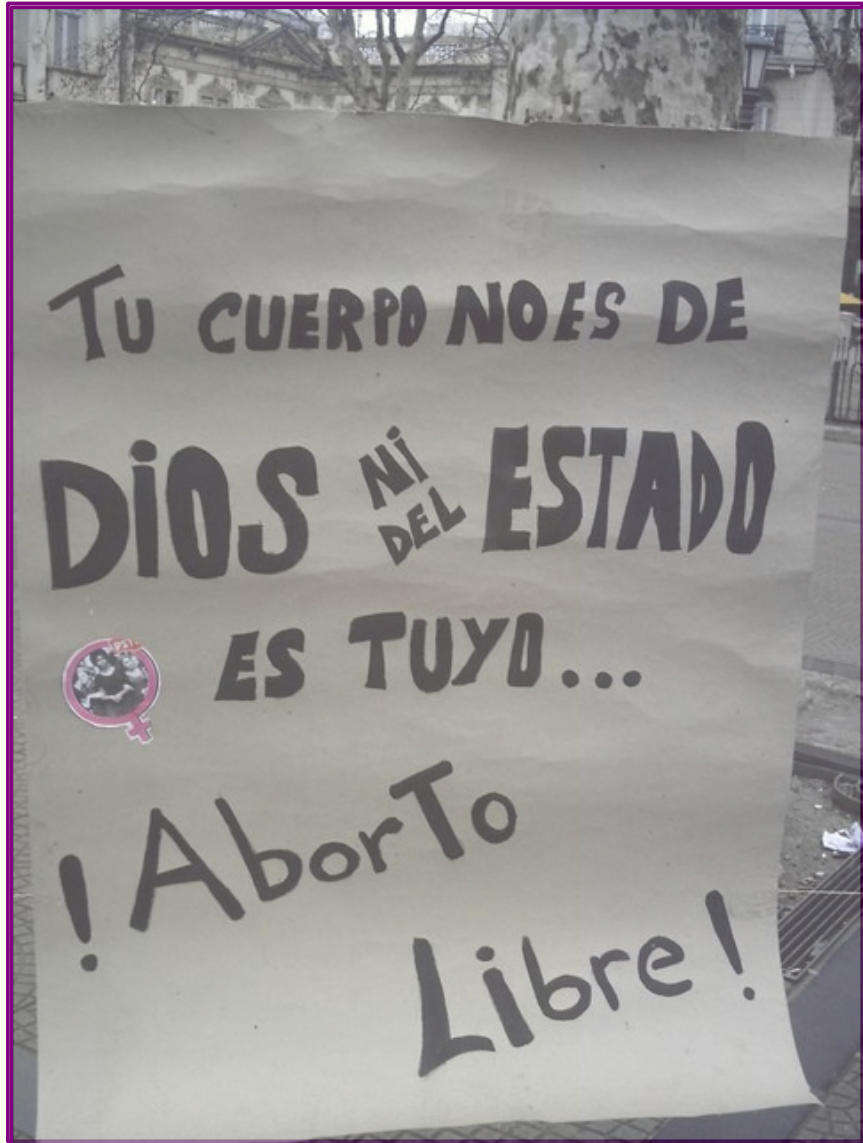 TU CUERPO NO ES DE
DiOS Ni DEL ESTADO
ES TUYO...
!AborTo
Libre!